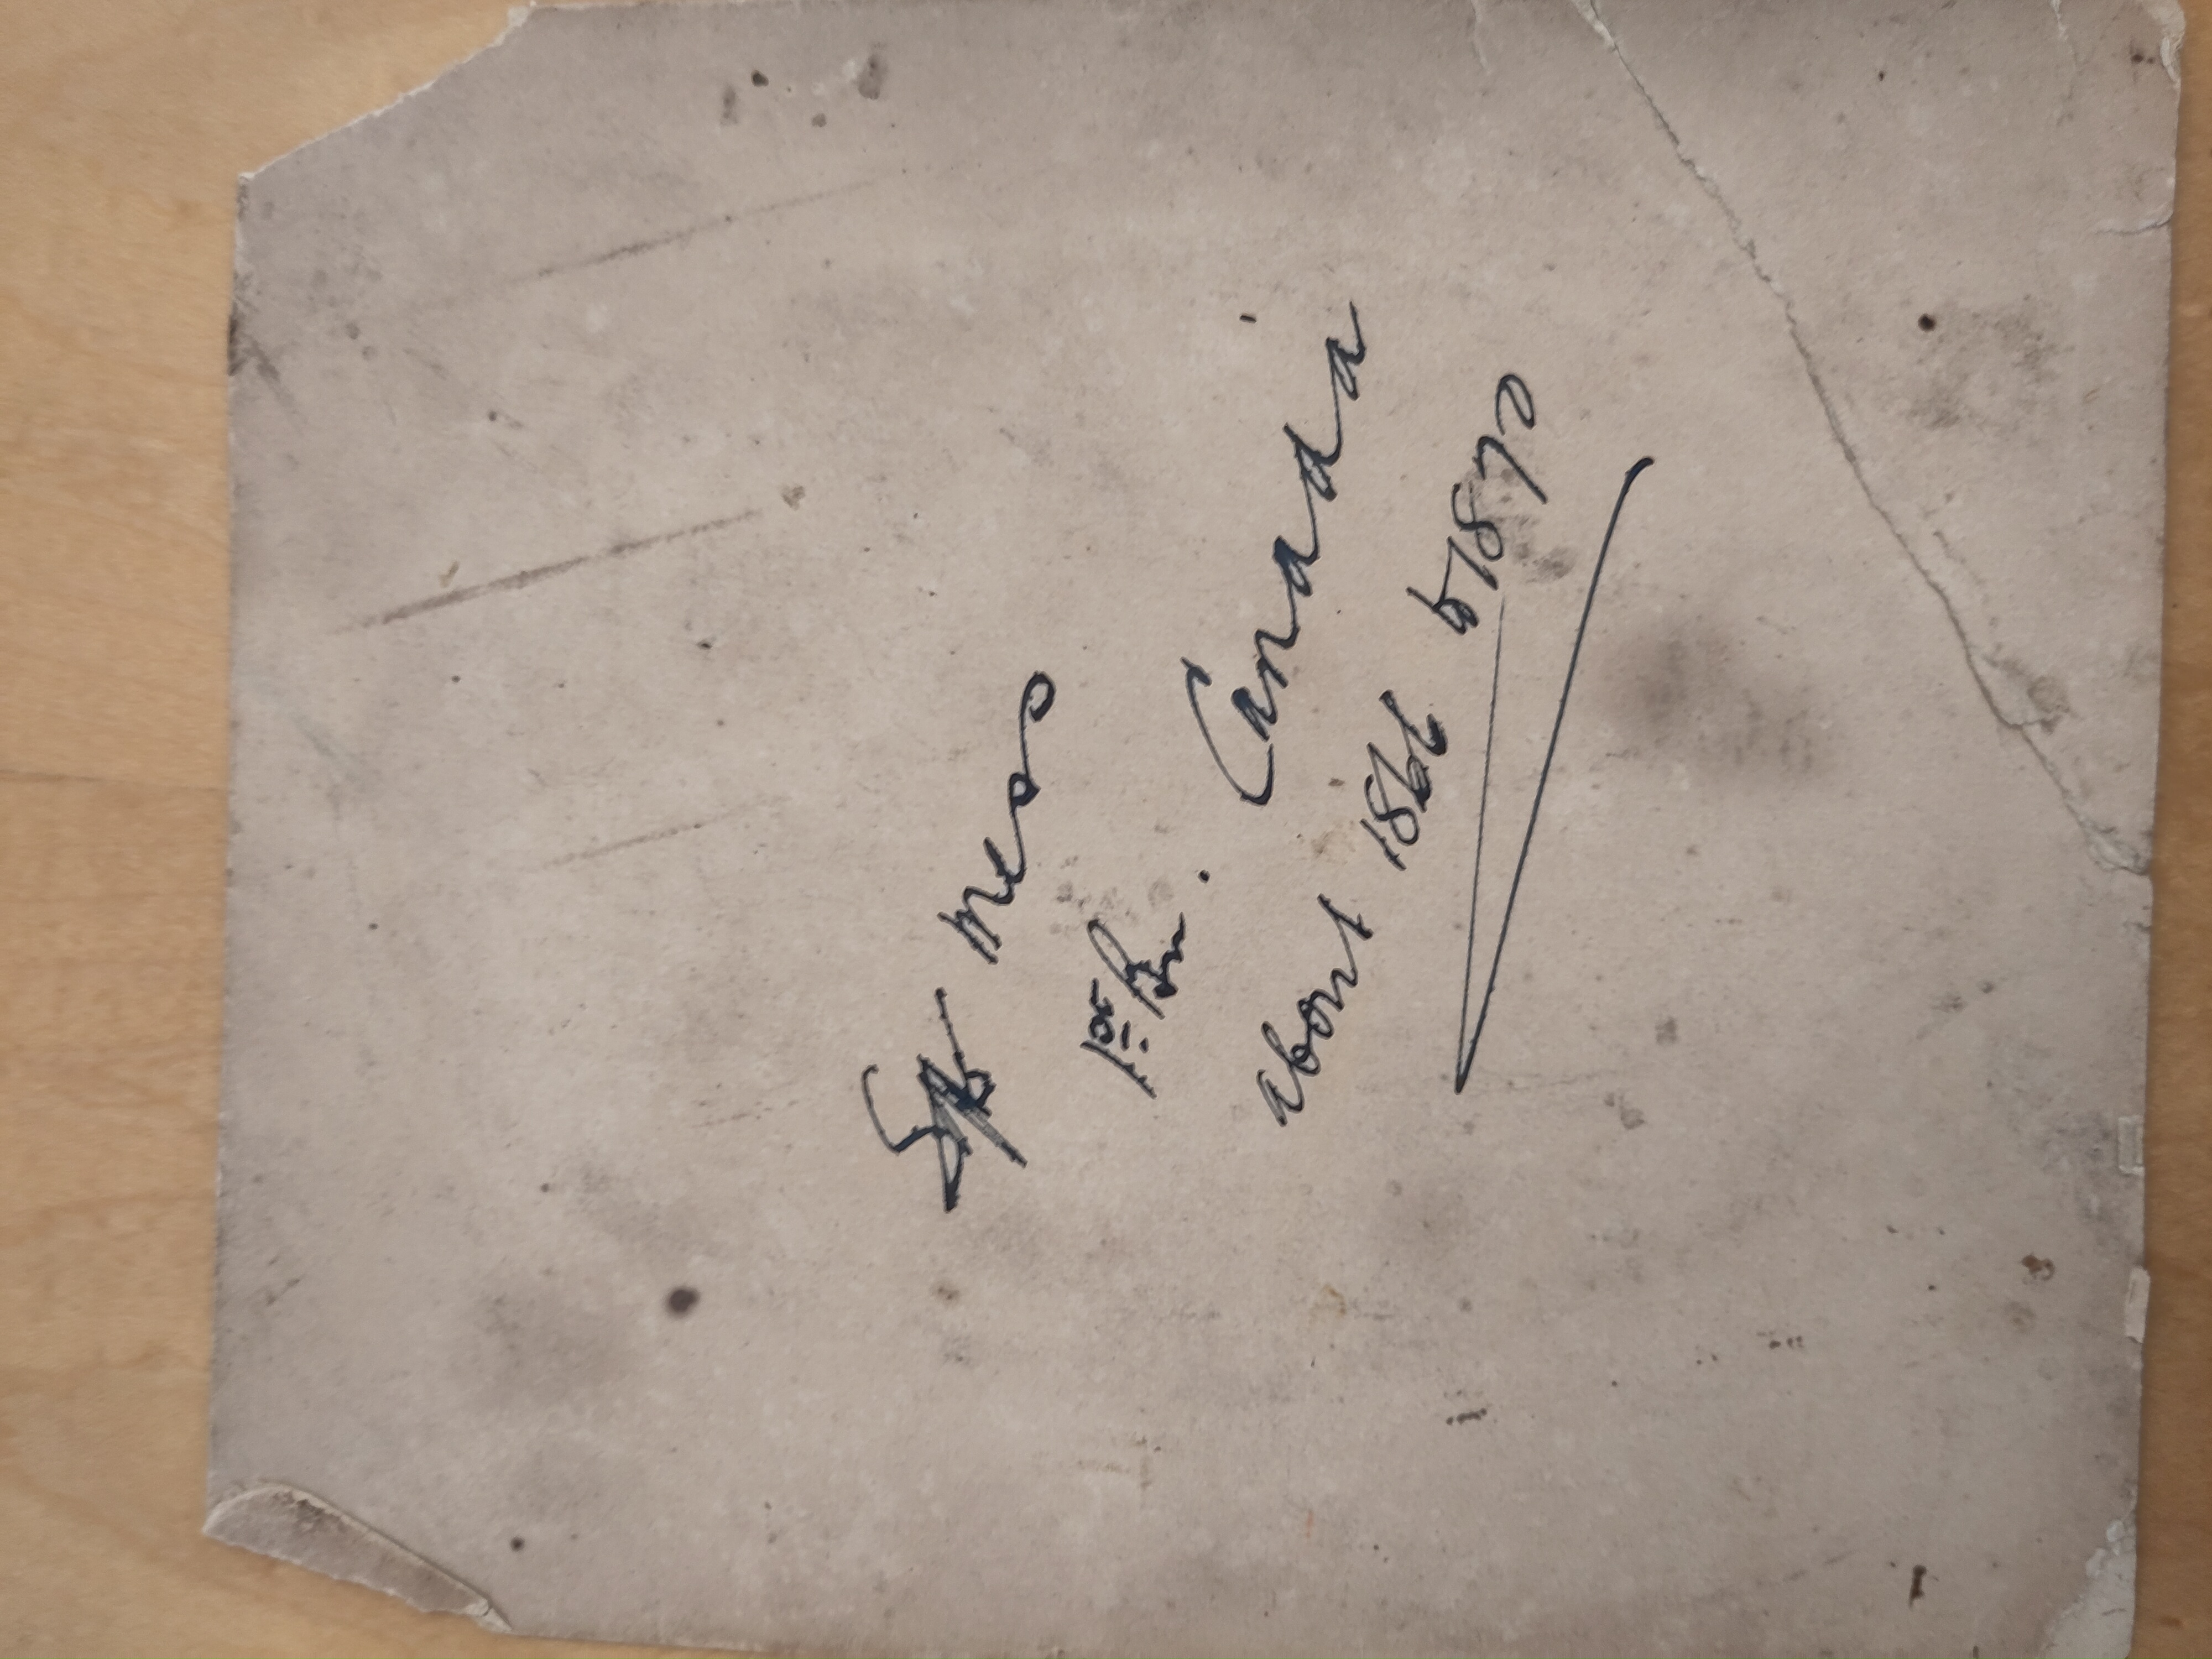 Sgts mess
1st Bn. Canada
about 1866 to 1870